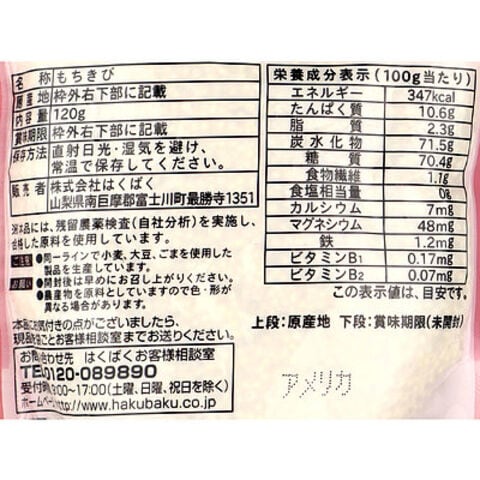 名称 もちきび
原産地 枠外右下部に記載
内容量 120g
賞味期限 枠外右下部に記載
保存方法 直射日光・湿気を避け、
常温で保存してください。
販売者 株式会社はくばく
山梨県南巨摩郡富士川町最勝寺1351
品には、残留農薬検査(自社分析)を実施し、
合格した原料を使用しています。
●同一ラインで小麦、大豆、ごまを使用した
製品を生産しています。
●開封後は早めにお召し上がりください。
●農産物を原料としていますので色・形が
異なる場合があります。
お気付きの点がございましたら、
お客様相談室までお送りください。
お問い合わせ先 はくばくお客様相談室
TEL0120-089890
受付時間 9:00~17:00(土曜、日曜、祝日を除く)
ホームページhttp://www.hakubaku.co.jp
栄養成分表示(100g当たり)
エネルギー 347kcal
たんぱく質 10.6g
脂質 2.3g
炭水化物 71.5g
糖質 70.4g
食物繊維 1.1g
食塩相当量 0g
カルシウム 7mg
マグネシウム 48mg
鉄 1.2mg
ビタミンB1 0.17mg
ビタミンB2 0.07mg
この表示値は、目安です。
上段:原産地 下段:賞味期限(未開封)
アメリカ